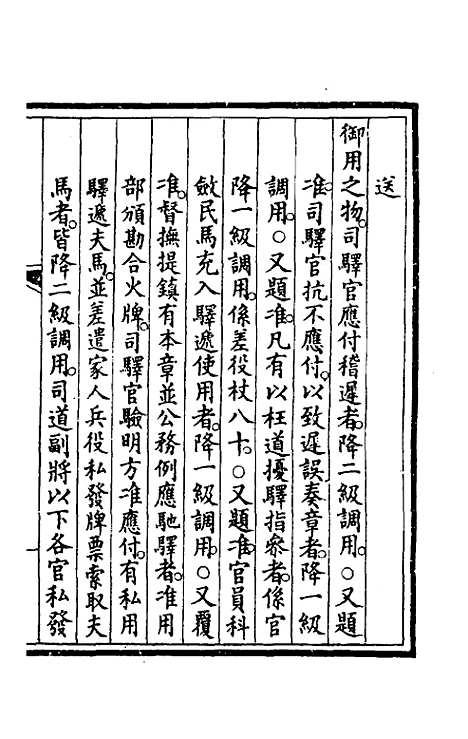 送
御用之物。司驛官應付稽遲者。降二級調用。○又題
准。司驛官抗不應付。以致遲誤奏章者。降一級
調用。○又題准。凡有以枉道擾驛指參者。係官
降一級調用。係差役杖八十。○又題准。官員科
斂民馬充入驛遞使用者。降一級調用。○又覆
准。督撫提鎮有本章並公務例應馳驛者。准用
部頒勘合火牌。司驛官驗明方准應付。有私用
驛遞夫馬。並差遣家人兵役私發牌票索取夫
馬者。皆降二級調用。司道副將以下各官私發